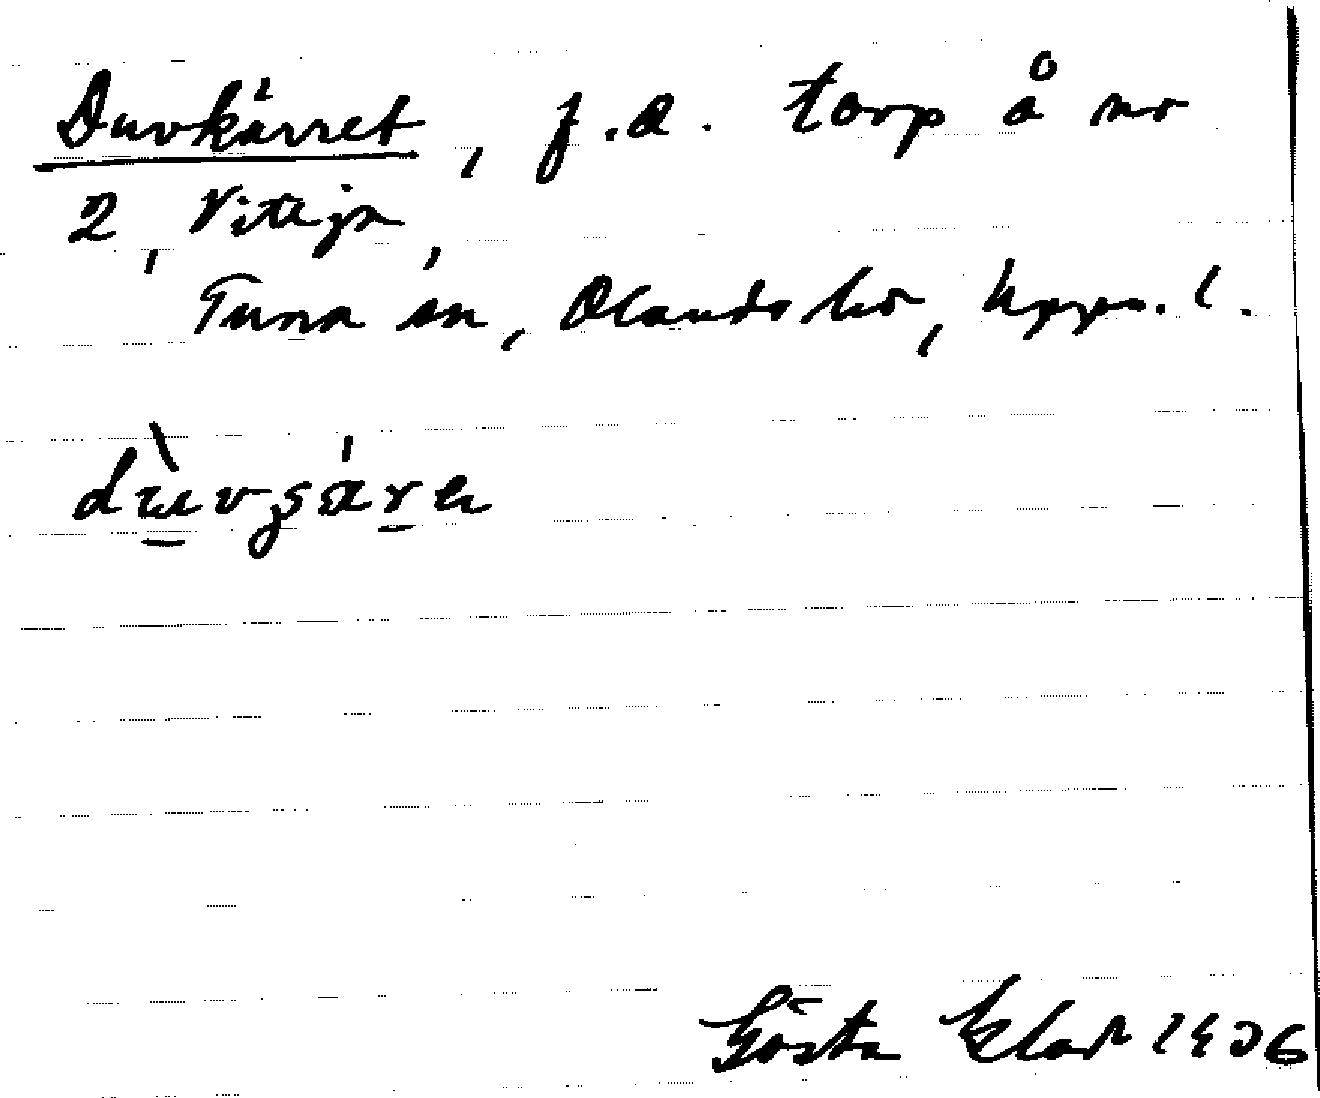 Duvkärret, f.d. torp å nr
2, Viteja,
Tuna sn, Olands hd, Upps. l.
Gösta Klar 1906